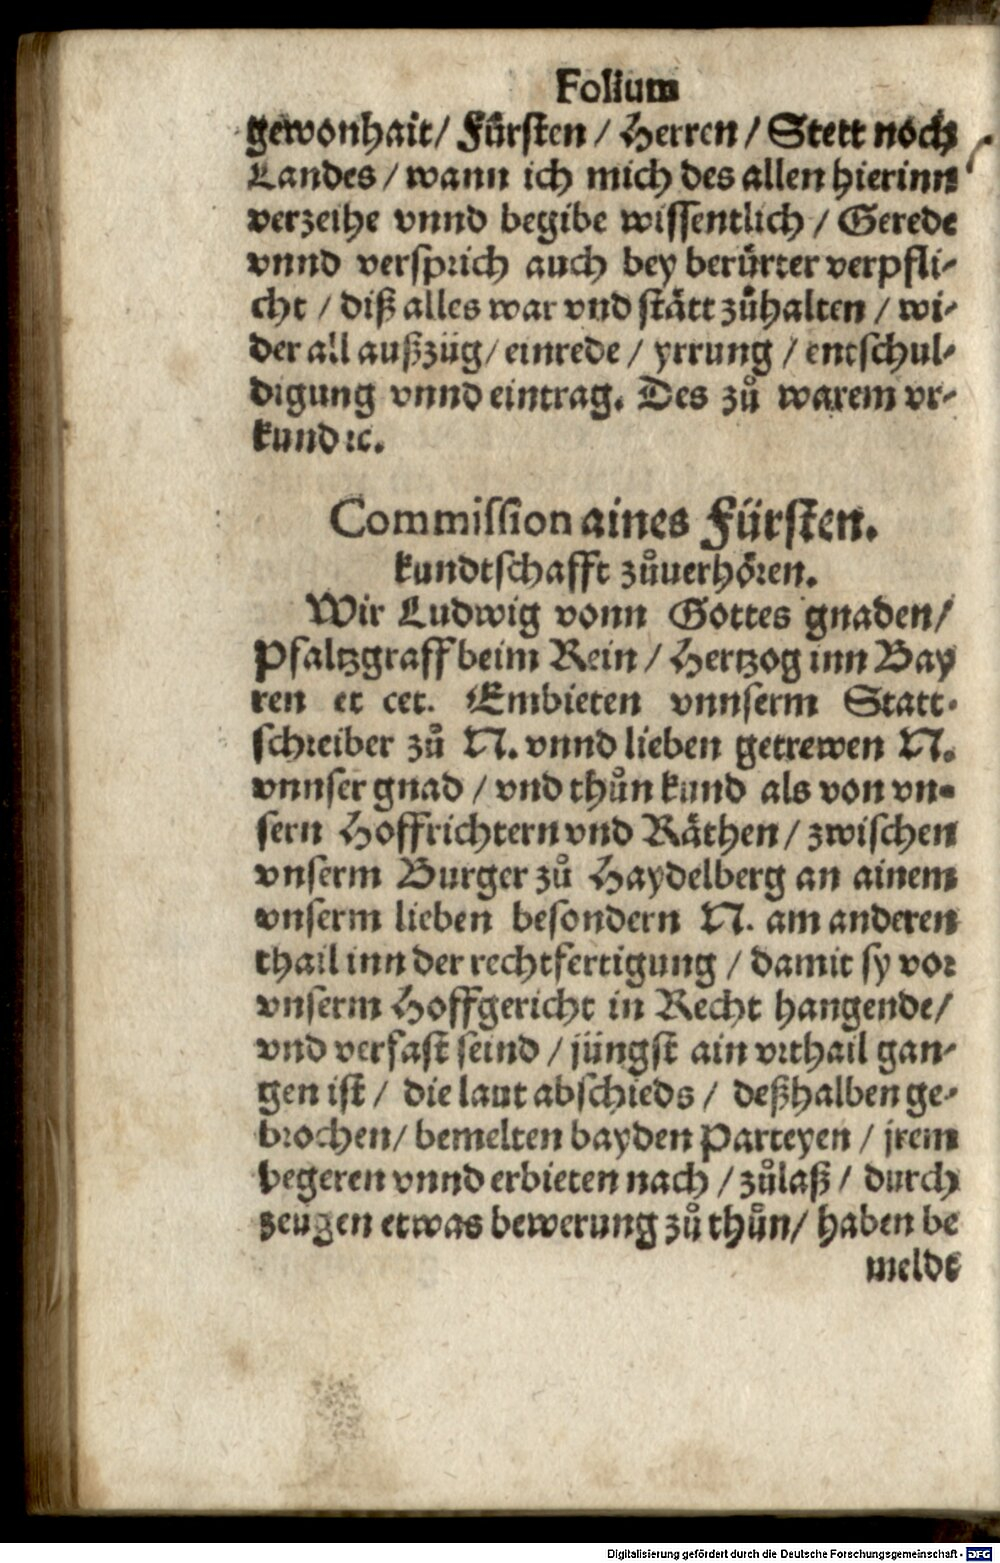 Folium
gewonhait/ Fürsten / Herren / Stett noch
Landes / wann ich mich des allen hierinn
verzeihe vnnd begibe wissentlich / Gerede
vnnd versprich auch bey berürter verpfli-
cht / diß alles war vnd stätt zůhalten / wi-
der all außzüg / einrede / yrrung / entschul-
digung vnnd eintrag. Des zů warem vr-
kund ꝛc.
Commission aines Fürsten.
kundtschafft zůuerhören.
Wir Ludwig vonn Gottes gnaden/
Pfaltzgraff beim Rein / Hertzog inn Bay
ren et cet. Embieten vnnserm Statt-
schreiber zů N. vnnd lieben getrewen N.
vnnser gnad / vnd thůn kund als von vn-
sern Hoffrichtern vnd Räthen / zwischen
vnserm Burger zů Haydelberg an ainem
vnserm lieben besondern N. am anderen
thail inn der rechtfertigung / damit sy vor
vnserm Hoffgericht in Recht hangende/
vnd verfast seind / jüngst ain vrthail gan-
gen ist / die laut abschieds / deßhalben ge-
brochen/ bemelten bayden Parteyen / jrem
begeren vnnd erbieten nach / zůlaß / durch
zeugen etwas bewerung zů thůn/ haben be
meldt
Digitalisierung gefördert durch die Deutsche Forschungsgemeinschaft - DFG